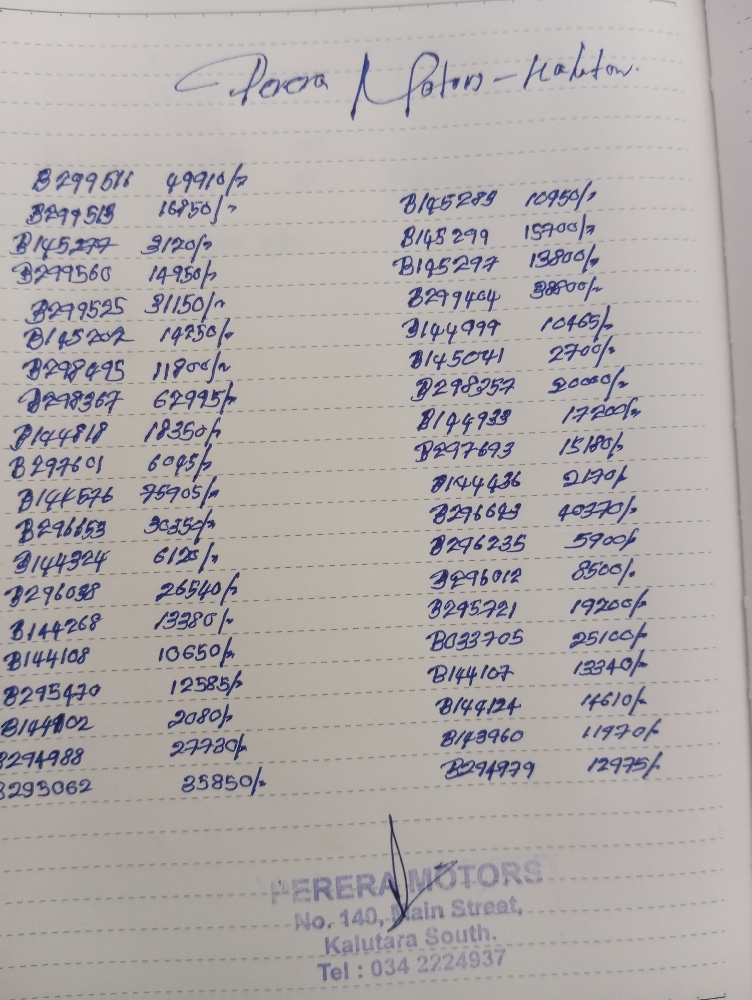 Perera Motors - Kalutara.
B299516 49910/-
B299513 16850/-
B145277 3120/-
B299560 14950/-
B299525 31150/-
B145202 14250/-
B298495 11800/-
B298367 62995/-
B144818 18350/-
B297601 6095/-
B144576 75905/-
B296853 30350/-
B144324 6120/-
B296038 26540/-
B144268 13380/-
B144108 10650/-
B295470 12585/-
B144102 2080/-
B294988 27730/-
B293062 35850/-
B145283 10950/-
B145299 15700/-
B145297 13800/-
B299404 38800/-
B144999 10465/-
B145041 2700/-
B298357 20000/-
B144933 17200/-
B297693 15180/-
B144436 2170/-
B296693 40370/-
B296235 5900/-
B296012 8500/-
B295721 19200/-
B033705 25100/-
B144107 13340/-
B144124 14610/-
B143960 11970/-
B294979 12975/-
PERERA MOTORS
No. 140, Main Street,
Kalutara South.
Tel : 034 2224937